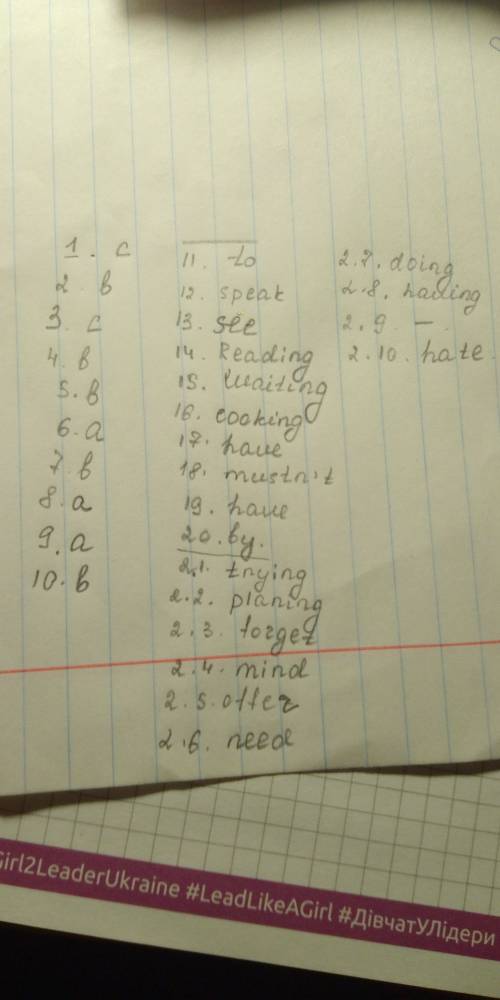 1. c
2. b
3. c
4. b
5. b
6. a
7. b
8. a
9. a
10. b
11. to
12. speak
13. see
14. Reading
15. Waiting
16. cooking
17. have
18. mustn't
19. have
20. by.
2.1. trying
2.2. planing
2.3. forget
2.4. mind
2.5. offer
2.6. need
2.7. doing
2.8. having
2.9. –.
2.10. hate.
Girl2LeaderUkraine #LeadLikeAGirl #ДівчатУЛідери